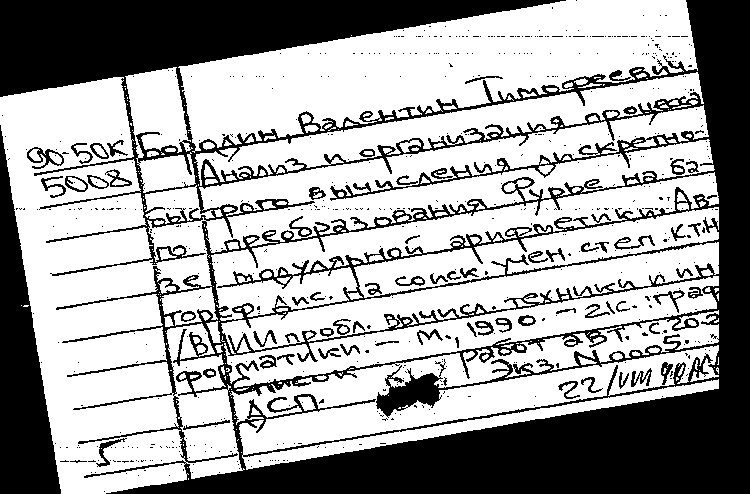 90-50К
5008
Бородин, Валентин Тимофеевич.
Анализ и организация процесса
быстрого вычисления дискретно-
го преобразования Фурье на ба-
зе модулярной арифметики: Ав-
тореф. дис. на соиск. учен. степ. к.т.н
/ВНИИ пробл. вычисл. техники и ин
форматики. – М., 1990. – 21с. : граф
Список работ авт.: с. 20-2
ДСП. Экз. N0005.
22/VIII 90
5